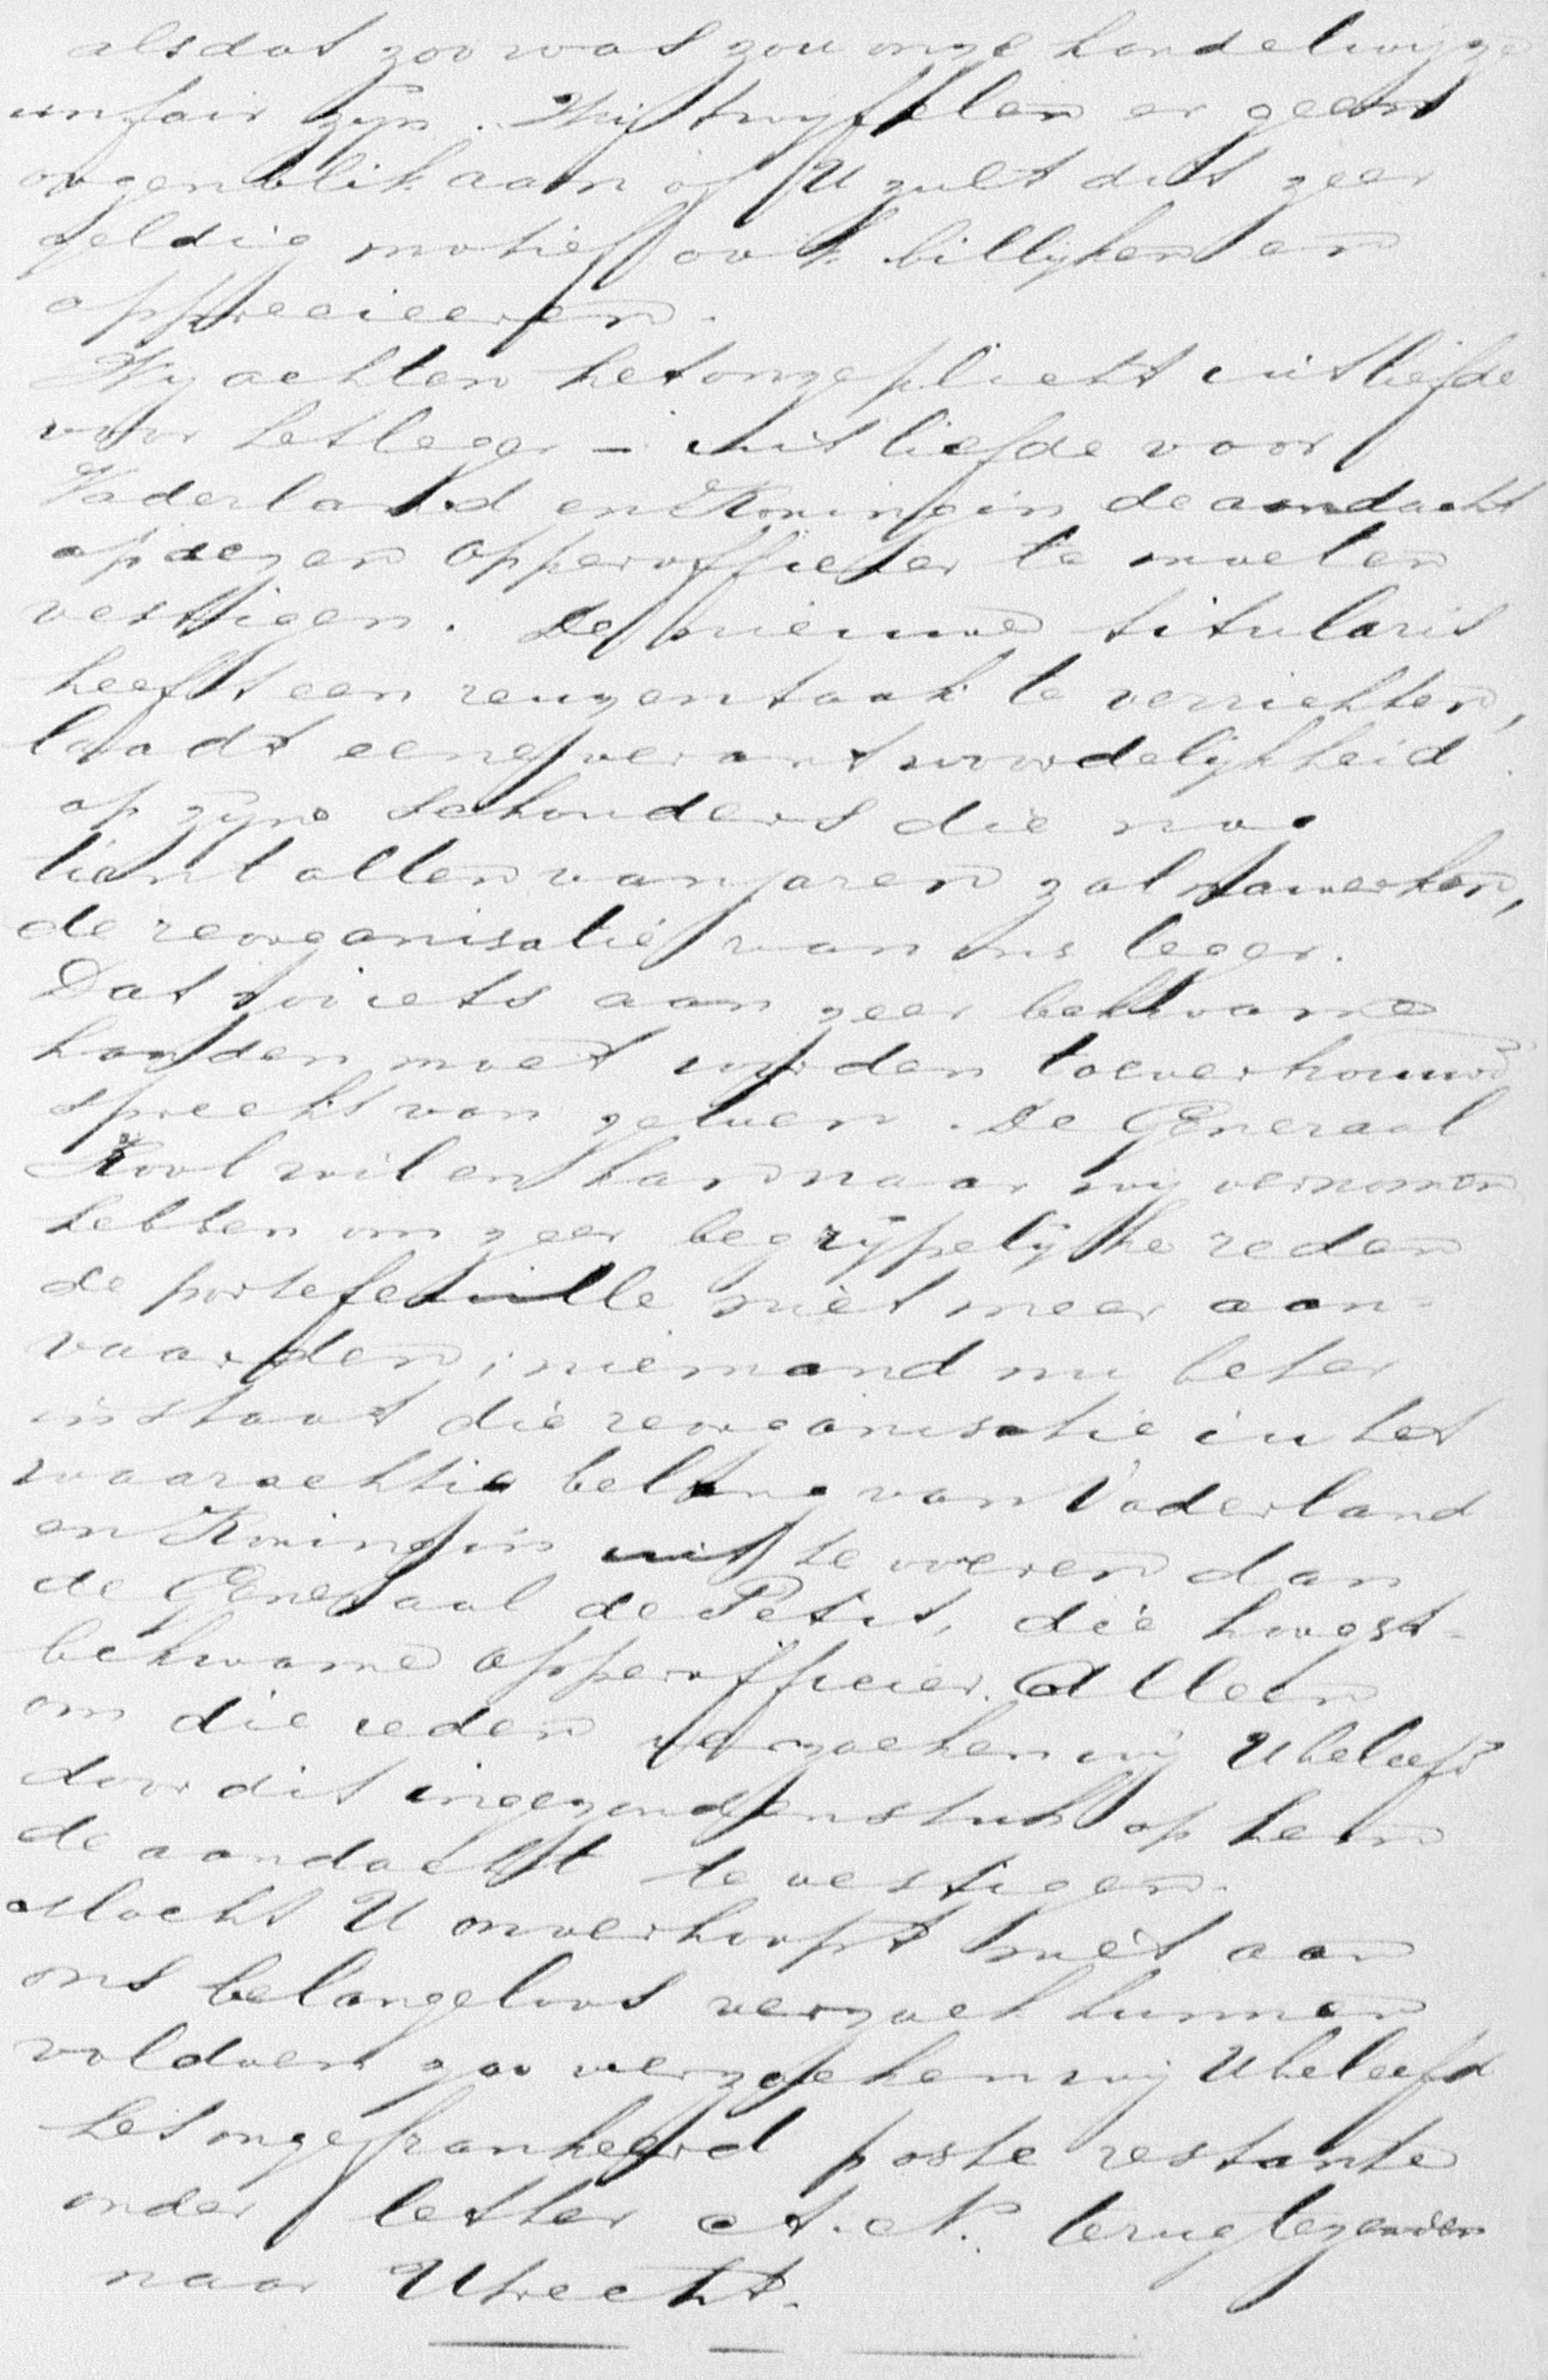 alsdat zoo was zou onze handelwijze
unfair zijn. Wij twijfelen er geen
oogenblik aan of U zult dit zeer
geldig motief ook billijken en
apprecieeren.
Wij achten het onze plicht uit liefde
voor het leger – uit liefde voor
Vaderland en Koningin de aandacht
op dezen opperofficier te moeten
vestigen. De nieuwe titularis
heeft een reuzentaak te verrichten,
laadt eene verantwoordelijkheid
op zijne schouders die nog
tientallen van jaren zal nawerken,
de reorganisatie van ons leger.
Dat zoo iets aan zeer bekwame
handen moet worden toevertrouwd
spreekt van zelven. De Generaal
Kool wil en kan naar wij vernomen
hebben om zeer begrijpelijke reden
de portefeuille niet meer aan-
vaarden, niemand nu beter
in staat die reorganisatie in het
waarachtig belang van Vaderland
en Koningin uit te voeren dan
de Generaal de Petit, die hoogst-
bekwame opperofficier. Alleen
om die reden verzoeken wij U beleefd
door dit ingezonden stuk op hem
de aandacht te vestigen.
Mocht U onverhoopt niet aan
ons belangeloos verzoek kunnen
voldoen zoo verzoeken wij U beleefd
het ongefrankeerd poste restante
onder letter A. N. terug te zenden
naar Utrecht.